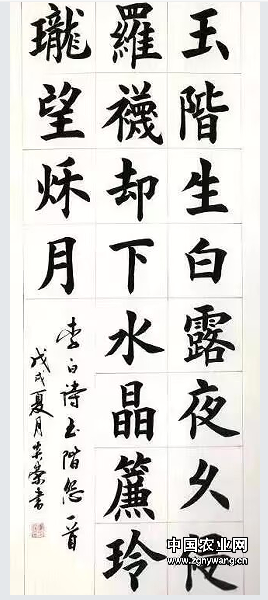 玉階生白露夜久侵
羅襪却下水晶簾玲
瓏望秌月
李白诗玉階怨一首
戊戌夏月 榮書
中国农业网
www.zgnywang.cn